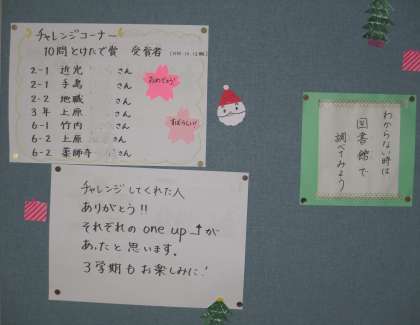 チャレンジコーナー
10問とけたで賞 受賞者
2-1 近光 さん
2-1 手島 さん
2-2 地職 さん
3年 上原 さん
6-1 竹内 さん
6-2 上原 さん
6-2 薬師寺 さん
おめでとう!
すばらしい!
チャレンジしてくれた人
ありがとう!!
それぞれの one up ↑が
あったと思います。
3学期もお楽しみに!
わからない時は
図書館で
調べてみよう